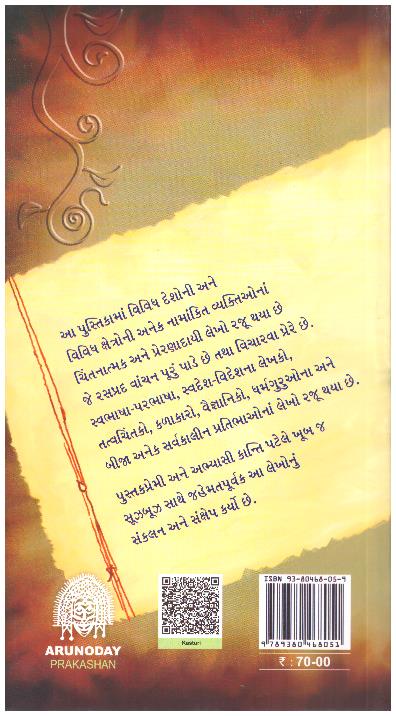 આ પુસ્તિકામાં વિવિધ દેશોની અને
વિવિધ ક્ષેત્રોની અનેક નામાંકિત વ્યક્તિઓનાં
ચિંતનાત્મક અને પ્રેરણાદાયી લેખો રજૂ થયા છે
જે રસપ્રદ વાંચન પૂરું પાડે છે તથા વિચારવા પ્રેરે છે.
સ્વભાષા-પરભાષા, સ્વદેશ-વિદેશના લેખકો,
તત્વચિંતકો, કળાકારો, વૈજ્ઞાનિકો, ધર્મગુરુઓના અને
બીજા અનેક સર્વકાલીન પ્રતિભાઓનાં લેખો રજૂ થયા છે.
પુસ્તકપ્રેમી અને અભ્યાસી કાન્તિ પટેલે ખૂબ જ
સૂઝબૂઝ સાથે જહેમતપૂર્વક આ લેખોનું
સંકલન અને સંક્ષેપ કર્યો છે.
ARUNODAY
PRAKASHAN
Kasturi
ISBN 93-80468-05-9
9 789380 468051
₹ : 70-00